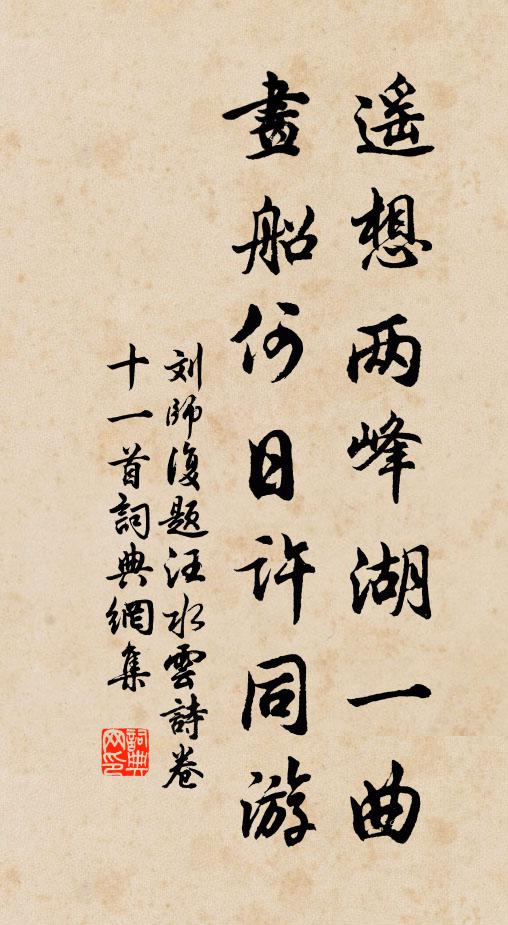 遥想两峰湖一曲
畫船何日許同游
刘師復題汪水雲詩卷
十一首詞典網集
詞典
网印